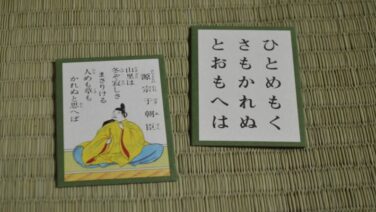 源宗于朝臣
山里は
冬ぞ寂しさ
まさりける
人めも草も
かれぬと思へば
ひとめもく
さもかれぬ
とおもへは